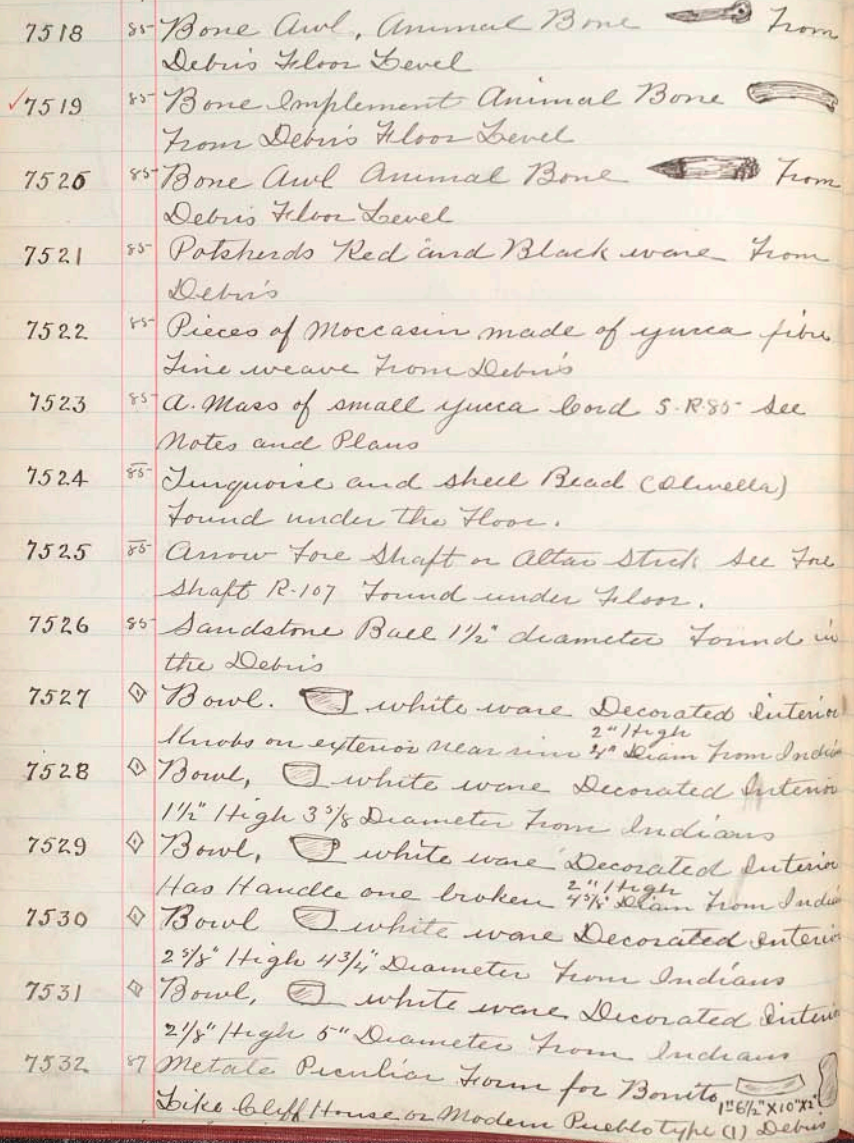 7518 85 Bone Awl, Animal Bone From
Debris Floor Level
7519 85 Bone Implement Animal Bone
From Debris Floor Level
7520 85 Bone Awl Animal Bone From
Debris Floor Level
7521 85 Potsherds Red and Black ware From
Debris
7522 85 Pieces of Moccasin made of yucca fibre
Fine weave From Debris
7523 85 A. Mass of small yucca Cord S-R-85 See
Notes and Plans
7524 85 Turquoise and shell Bead (Olivella)
Found under the Floor.
7525 85 Arrow Fore Shaft or Altar Stick See Fore
Shaft R-107 Found under Floor.
7526 85 Sandstone Ball 1½" diameter Found in
the Debris
7527 Bowl. white ware Decorated Interior
2" High
Knobs on exterior near rim Diam From
7528 Bowl, white ware Decorated Interior
1½" High 3 5/8 Diameter From Indians
7529 Bowl, white ware Decorated Interior
2" High
Has Handle one broken 4 5/8" Diam From
7530 Bowl white ware Decorated Interior
2 5/8" High 4 3/4" Diameter From Indians
7531 Bowl, white ware Decorated Interior
2 1/8" High 5" Diameter From Indians
7532 87 Metate Peculiar Form for Bonito
1" 6½" X 10" X 2"
Like Cliff House or Modern Pueblo type (1) Debris